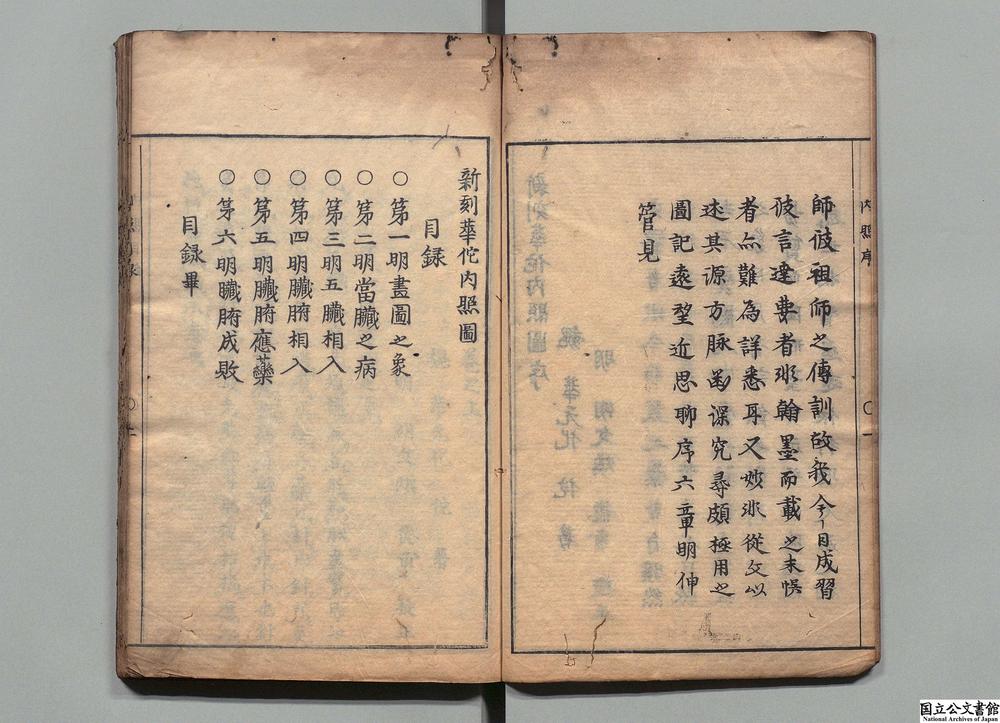 師彼祖師之傳訓故我今日成習
彼言達要者非翰墨而載之未悞
者亦難為詳悉耳又妙非從文以
述其源方脉𠢐深究尋頗極用之
圖記遠望近思聊序六章明伸
管見
内照序
新刻華佗内照圖
目録
○第一明晝圖之象
○第二明當臟之病
○第三明五臟相入
○第四明臟腑相入
○第五明臟腑應藥
○第六明臟腑成敗
目録畢
国立公文書館
National Archives of Japan